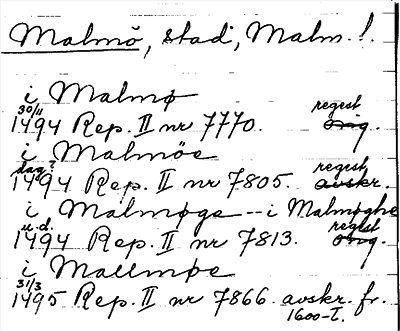 Malmö, stad, Malm. l.
i Malmø
30/11 regest
1494 Rep. II nr 7770. orig.
i Malmöe
dag? regest
1494 Rep. II nr 7805. avskr.
i Malmøge -- i Malmøghe
u.d. regest
1494 Rep. II nr 7813. orig.
i Mallmøe
31/3
1495 Rep. II nr 7866. avskr. fr.
1600-t.